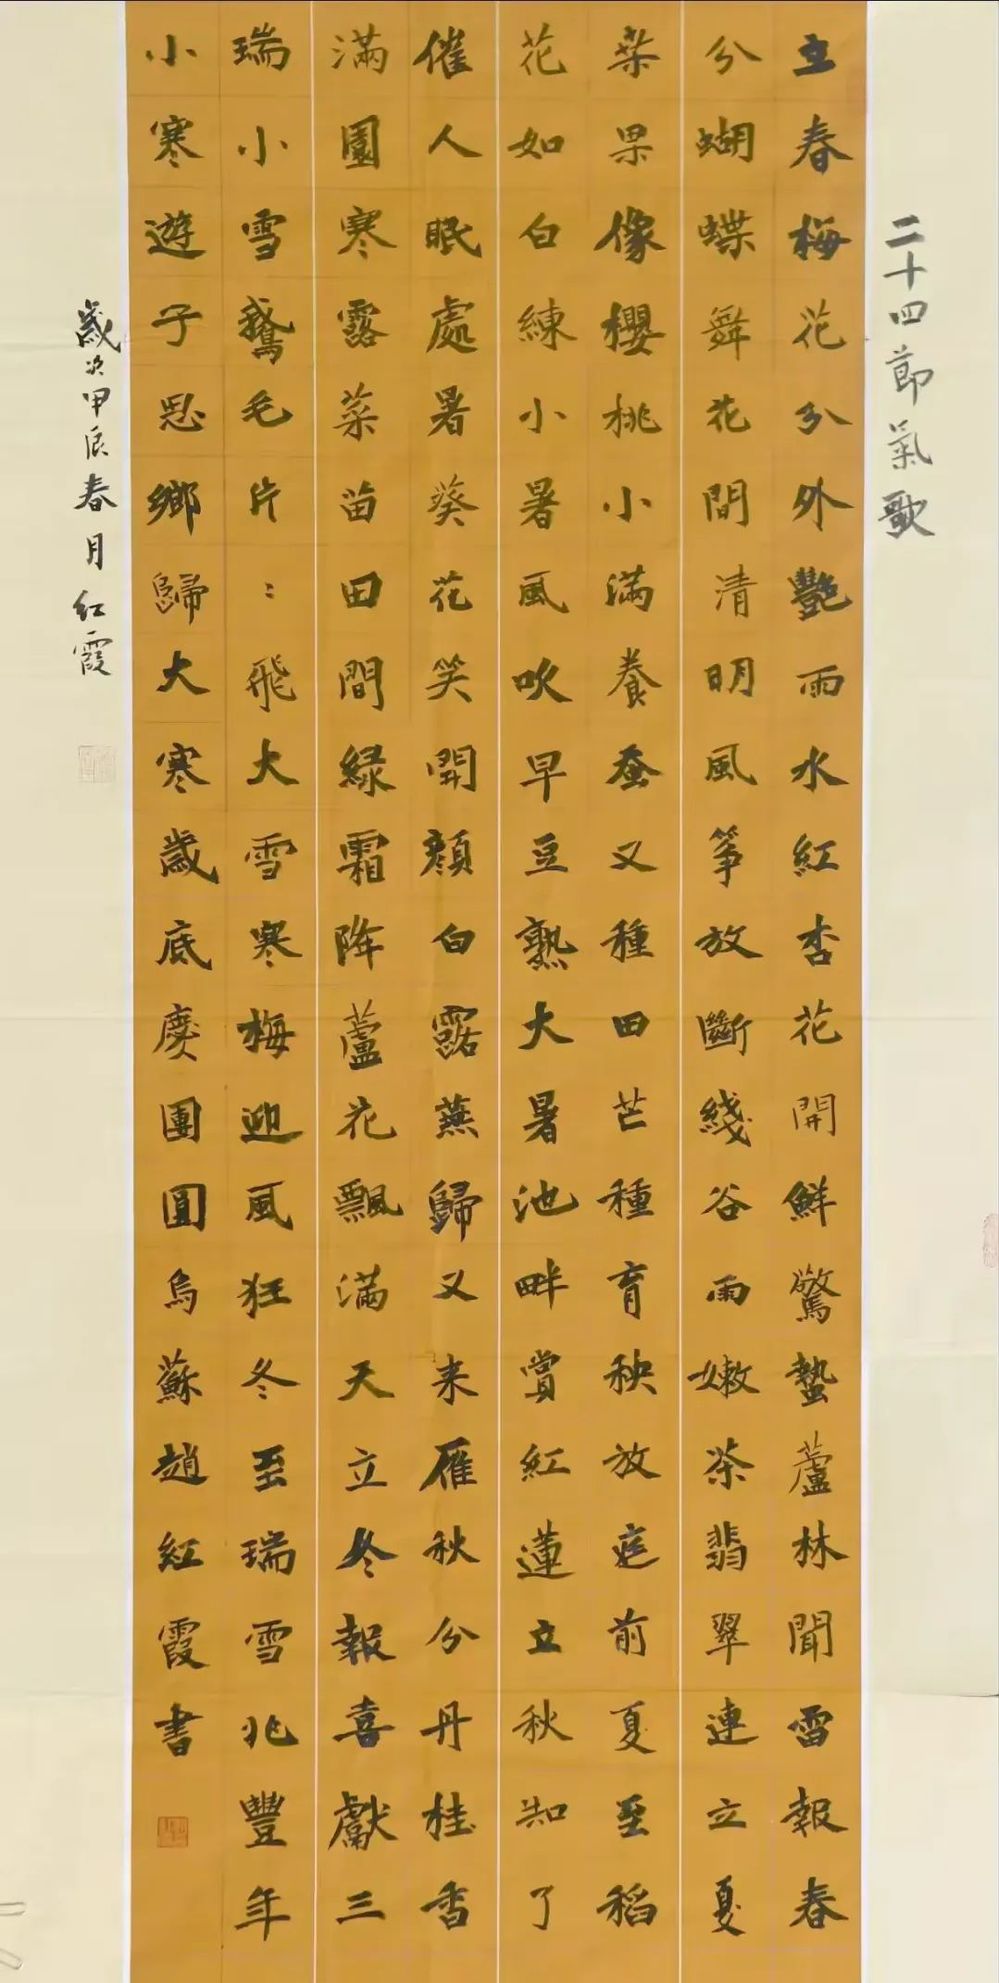 二十四節氣歌
立春梅花分外艷雨水紅杏花開鮮驚蟄蘆林聞雷報春
分蝴蝶舞花間清明風箏放斷綫谷雨嫩茶翡翠連立夏
桑果像櫻桃小滿養蚕又種田芒種育秧放庭前夏至稻
花如白練小暑風吹早豆熟大暑池畔賞紅蓮立秋知了
催人眠處暑葵花笑開顏白露燕歸又来雁秋分丹桂香
滿園寒露菜苗田間綠霜降蘆花飄滿天立冬報喜獻三
瑞小雪鵝毛片〻飛大雪寒梅迎風狂冬至瑞雪兆豐年
小寒遊子思鄉歸大寒歲底慶團圓烏蘇趙紅霞書
歲次甲辰春月紅霞